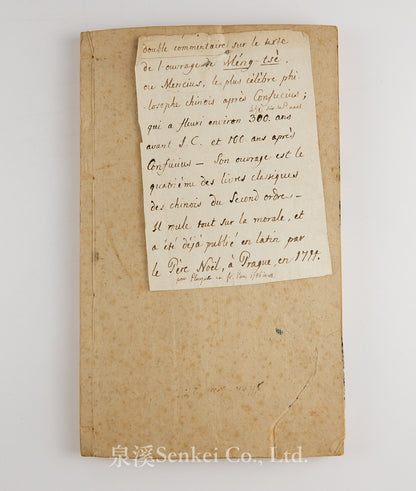 double commentaire sur le texte
de l'ouvrage de Méng-tsè,
ou Mencius, le plus célèbre phi-
losophe chinois après Confucius;
qui a fleuri environ 300. ans
avant J. C. et 100 ans après
Confucius — Son ouvrage est le
quatrième des livres classiques
des chinois du Second ordre —
Il roule tout sur la morale, et
a été déjà publié en latin par
le Père Noël, à Prague, en 1711.
泉溪Senkei Co., Ltd.